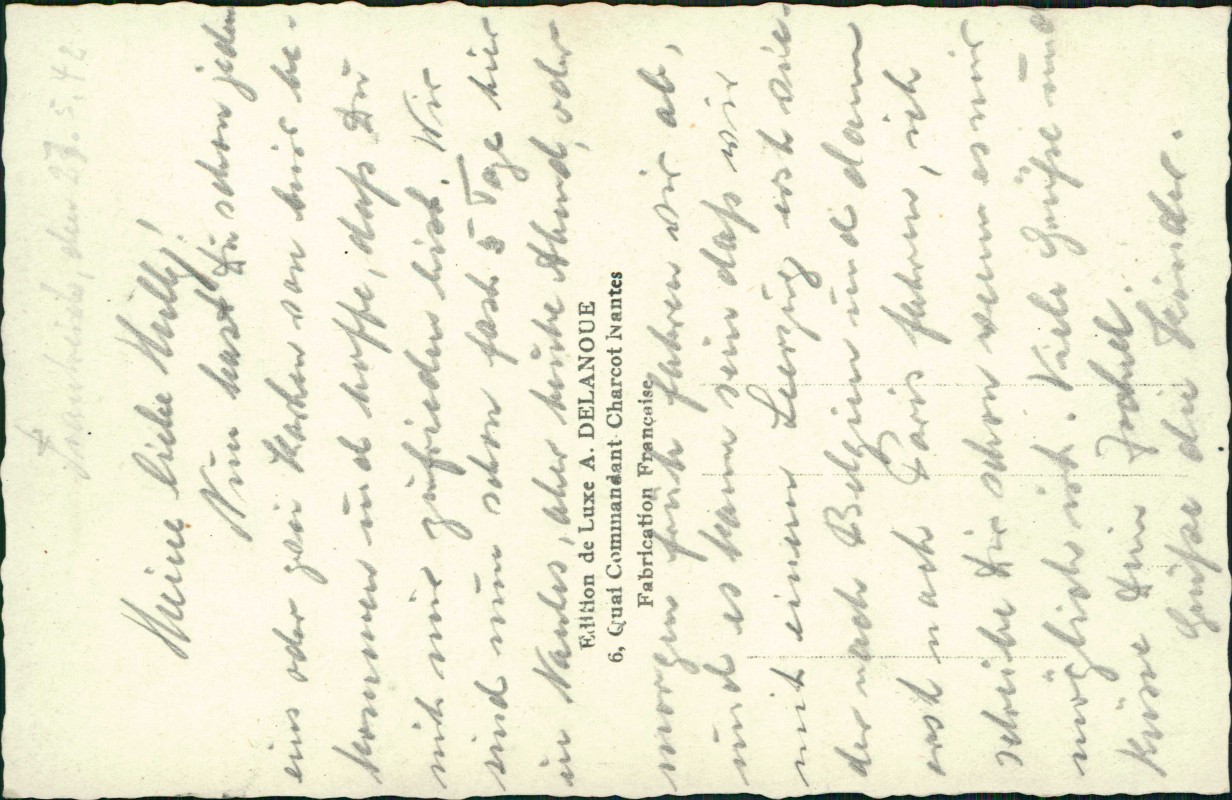 Frankreich, den 27.5.42
Meine liebe Mully!
Nun hast Du schon jeden
eins oder zwei Karten von mir be-
kommen und hoffe, daß Du
mit mir zufrieden bist. Wir
sind nun schon fast 5 Tage hier
in Nantes, aber heute Abend, oder
Edition de Luxe A. DELANOUE
6, Quai Commandant Charcot Nantes
Fabrication Française
morgen früh fahren wir ab,
und es kann sein daß wir
mit einem Leerzug erst wie-
der nach Belgien und dann
erst nach Paris fahren, ich
schreibe Dir schon wenn es mir
möglich ist. Viele Grüße und
Küsse Dein
Grüße die Kinder.